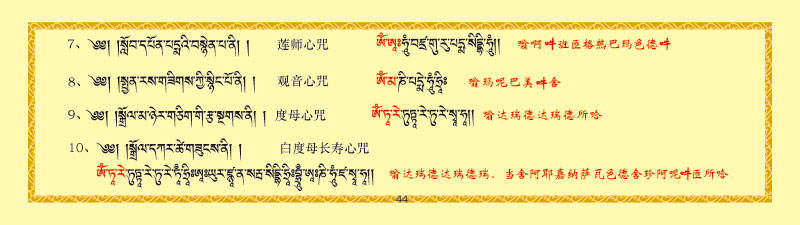 7、༄༅། །སློབ་དཔོན་པདྨའི་བསྙེན་པ་ནི། ། 莲师心咒 ༀ་ཨཱཿཧཱུྂ་བཛྲ་གུ་རུ་པདྨ་སིདྡྷི་ཧཱུྂ།། 嗡啊吽班匝格热巴玛色德吽
8、༄༅། །སྤྱན་རས་གཟིགས་ཀྱི་སྙིང་པོ་ནི། ། 观音心咒 ༀ་མ་ཎི་པདྨེ་ཧཱུྂ་ཧྲཱིཿ 嗡玛呢巴美吽舍
9、༄༅། །སྒྲོལ་མ་ཉེར་གཅིག་གི་རྩ་སྔགས་ནི། ། 度母心咒 ༀ་ཏཱ་རེ་ཏུཏྟཱ་རེ་ཏུ་རེ་སྭཱ་ཧཱ།། 嗡达瑞德达瑞德所哈
10、༄༅། །སྒྲོལ་དཀར་ཚེ་གཟུངས་ནི། ། 白度母长寿心咒
ༀ་ཏཱ་རེ་ཏུཏྟཱ་རེ་ཏུ་རེ་ཧཱུྂ་ཧྲཱིཿཨཱཡུར་ཛྙཱ་ན་སརྦ་སིདྡྷི་ཧྲཱིཿབྷྲཱུྂ་ཨཱཿཎི་ཧཱུྂ་ཛ་སྭཱ་ཧཱ།། 嗡达瑞德达瑞德瑞、当舍阿耶嘉纳萨瓦色德舍珍阿呢吽匝所哈
44